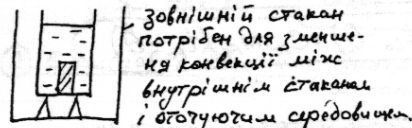 зовнішній стакан
потрібен для зменше-
ня конвекції між
внутрішнім стаканом
і оточуючим середовищем.